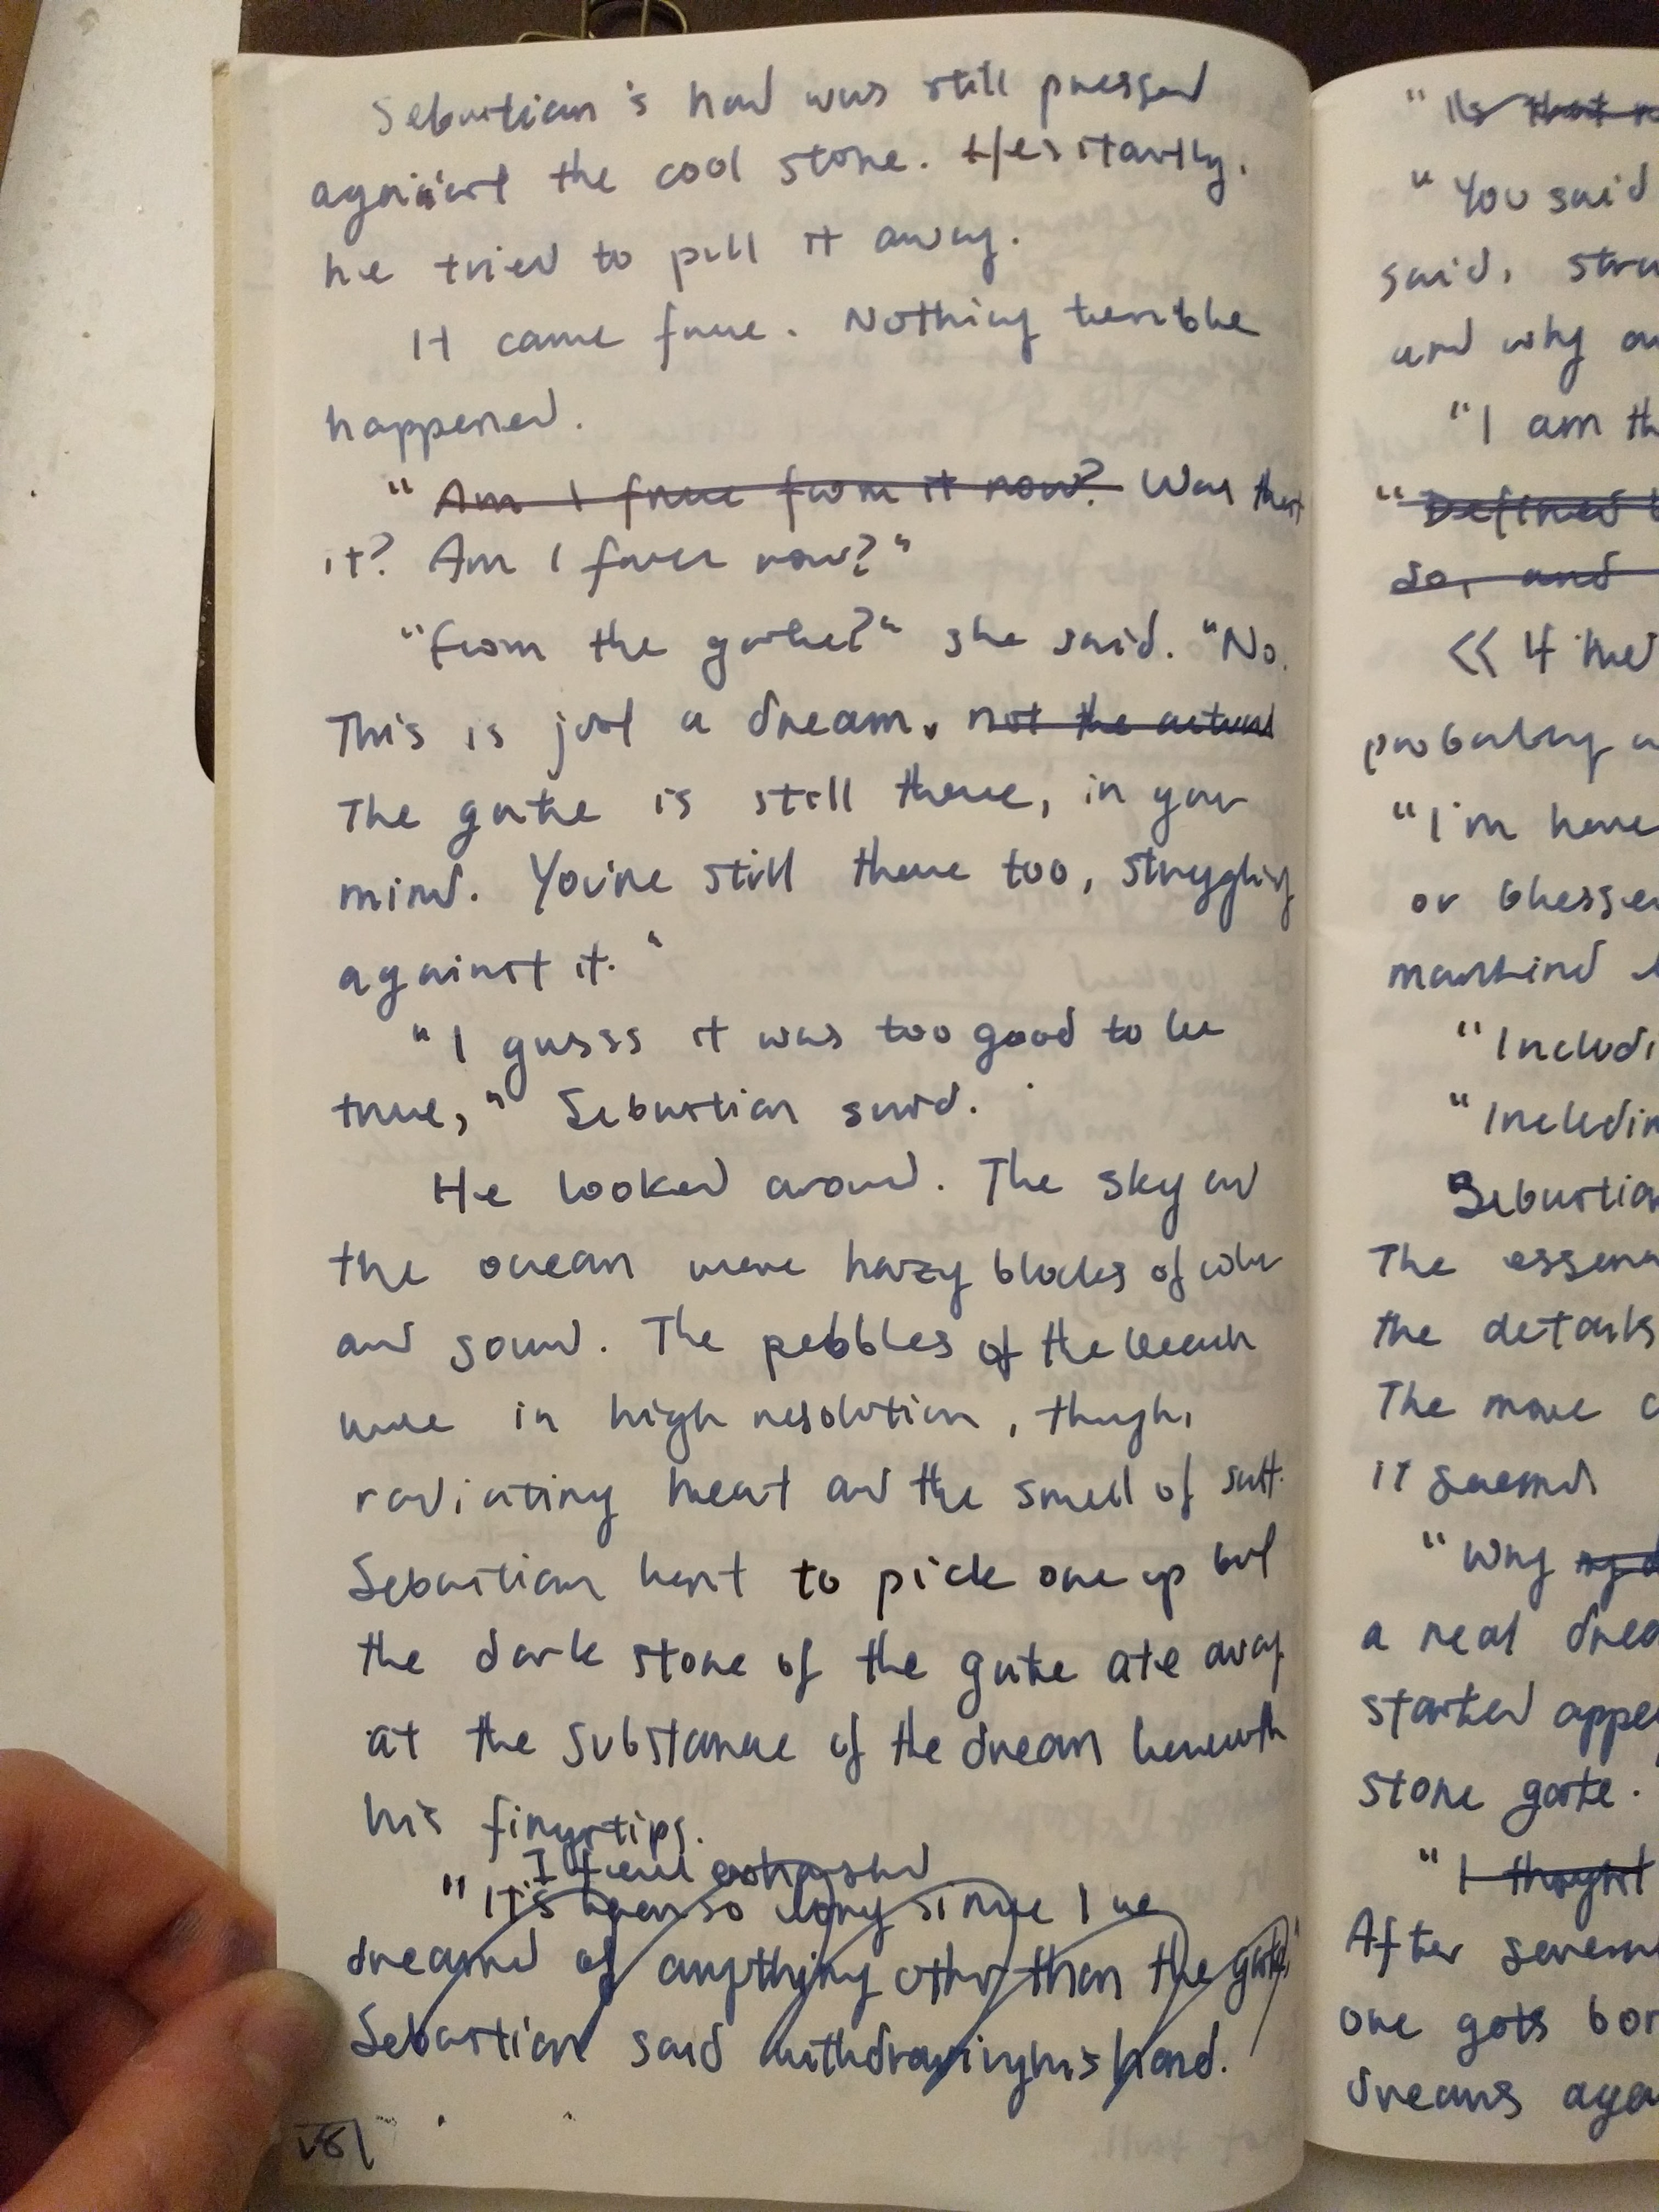 Sebastian's hand was still pressed
against the cool stone. Hesitantly,
he tried to pull it away.
It came free. Nothing terrible
happened.
"Am I free from it now? Was that
it? Am I free now?"
"From the gate?" she said. "No.
This is just a dream. not the actual
The gate is still there, in your
mind. You're still there too, struggling
against it."
"I gusss it was too good to be
true," Sebastian said.
He looked around. The sky and
the ocean were hazy blocks of color
and sound. The pebbles of the beach
were in high resolution, though,
radiating heat and the smell of salt.
Sebastian bent to pick one up but
the dark stone of the gate ate away
at the substance of the dream beneath
his fingertips.
I feel exhausted
"It's been so long since I've
dreamed of anything other than the gate,"
Sebastian said withdrawing his hand.
"You said
said,
and why
"I am
"Defined
So, and
<< If
probably
"I'm here
or blessed
mankind
"Includi
"Includin
Sebastian
The
the details
The more
it seemed
"Why
a real
started
stone gate.
"I thought
After
one gets
dreams